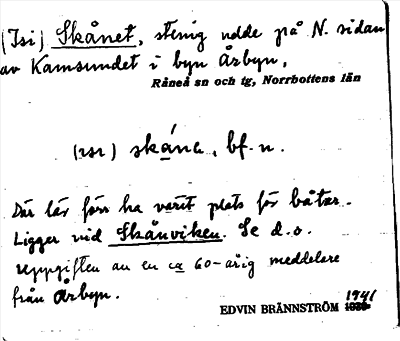 (Isi) Skånet, stenig udde på N. sidan
av Kamsundet i byn Årbyn,
Råneå sn och tg, Norrbottens län
skána, bf. n.
Där lär förr ha varit plats för båtar.
Ligger vid Skånviken. Se d.o.
uppgiften av en ca 60-årig meddelare
från Årbyn.
EDVIN BRÄNNSTRÖM 1941